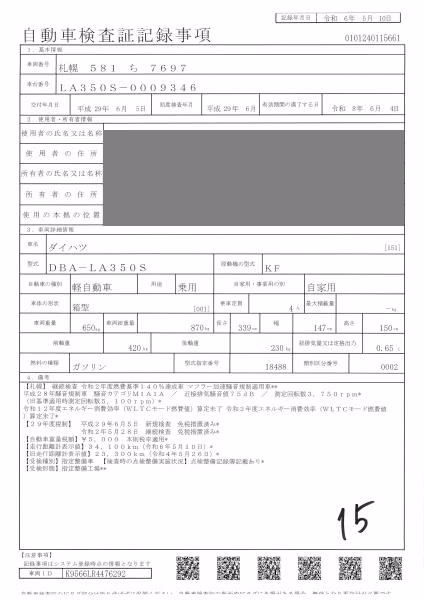 記録年月日 令和 6年 5月 10日
自動車検査証記録事項 0101240115661
1．基本情報
車両番号 札幌 581 ち 7697
車台番号 LA350S-0009346
交付年月日 平成 29年 6月 5日 初度検査年月 平成 29年 6月 有効期間の満了する日 令和 8年 6月 4日
2．使用者・所有者情報
使用者の氏名又は名称
使用者の住所
所有者の氏名又は名称
所有者の住所
使用の本拠の位置
3．車両詳細情報
車名 ダイハツ [151]
型式 DBA-LA350S 原動機の型式 KF
自動車の種別 軽自動車 用途 乗用 自家用・事業用の別 自家用
車体の形状 箱型 [001] 乗車定員 4人 最大積載量 -kg
車両重量 650kg 車両総重量 870kg 長さ 339cm 幅 147cm 高さ 150cm
前軸重 420kg 後軸重 230kg 総排気量又は定格出力 0.65L
燃料の種類 ガソリン 型式指定番号 18488 類別区分番号 0002
4．備考
【札幌】 継続検査 令和2年度燃費基準140%達成車 マフラー加速騒音規制適用車**
平成28年騒音規制車 騒音カテゴリM1A1A / 近接排気騒音値75dB / 測定回転数3，750rpm*
(旧基準適用時測定回転数5，100rpm)*
令和12年度エネルギー消費効率(WLTCモード燃費値)算定未了 令和3年度エネルギー消費効率(WLTCモード燃費値)算定未了*
【29年度税制】 平成29年6月5日 新規検査 免税措置済*
令和2年5月28日 継続検査 免税措置済**
【自動車重量税額】¥5，000 本則税率適用*
【走行距離計表示値】34，100km(令和6年5月10日)*
【旧走行距離計表示値】23，300km(令和4年5月26日)*
【受検種別】指定整備車 【検査時の点検整備実施状況】点検整備記録簿記載あり*
【受検形態】指定整備工場**
15
【注意事項】
記載事項はシステム登録時点の情報となります
車両ID K9566LR4476292